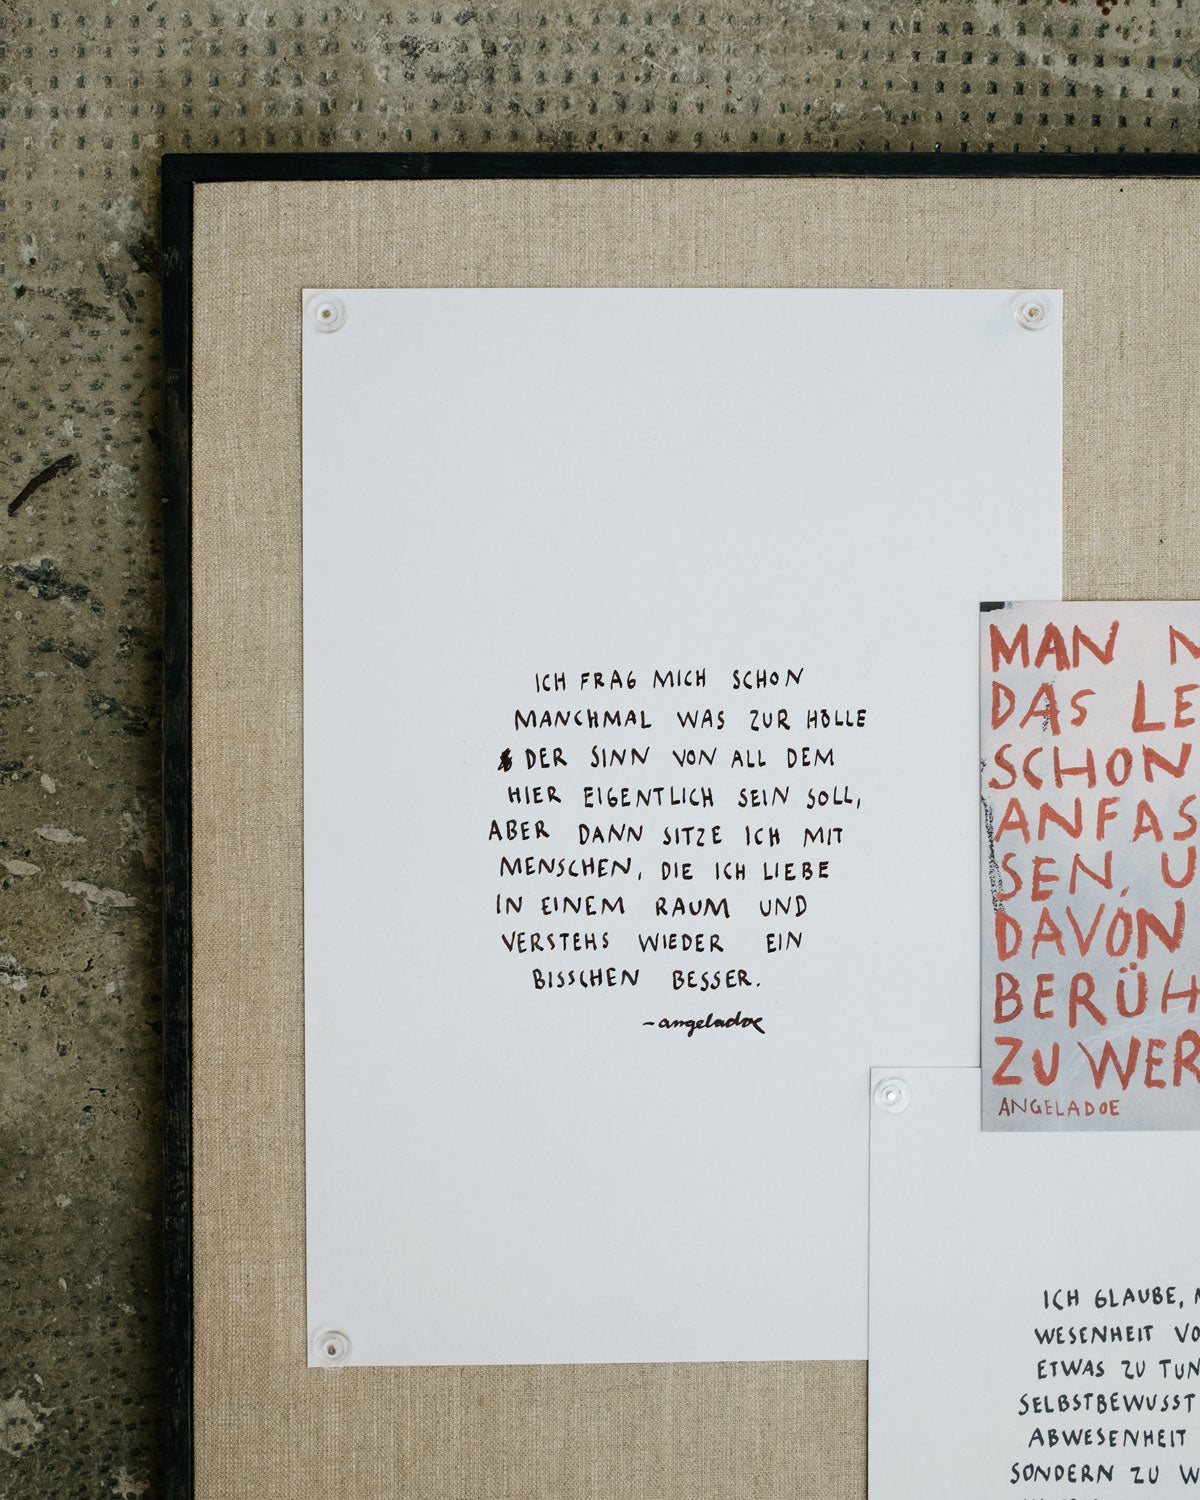 ICH FRAG MICH SCHON
MANCHMAL WAS ZUR HÖLLE
DER SINN VON ALL DEM
HIER EIGENTLICH SEIN SOLL,
ABER DANN SITZE ICH MIT
MENSCHEN, DIE ICH LIEBE
IN EINEM RAUM UND
VERSTEHS WIEDER EIN
BISSCHEN BESSER.
-angeladoe
MAN
DAS LE
SCHON
ANFAS
SEN, U
DAVON
BERÜH
ZU WER
ANGELADOE
ICH GLAUBE,
WESENHEIT VO
ETWAS ZU TUN
SELBSTBEWUSST
ABWESENHEIT
SONDERN ZU W